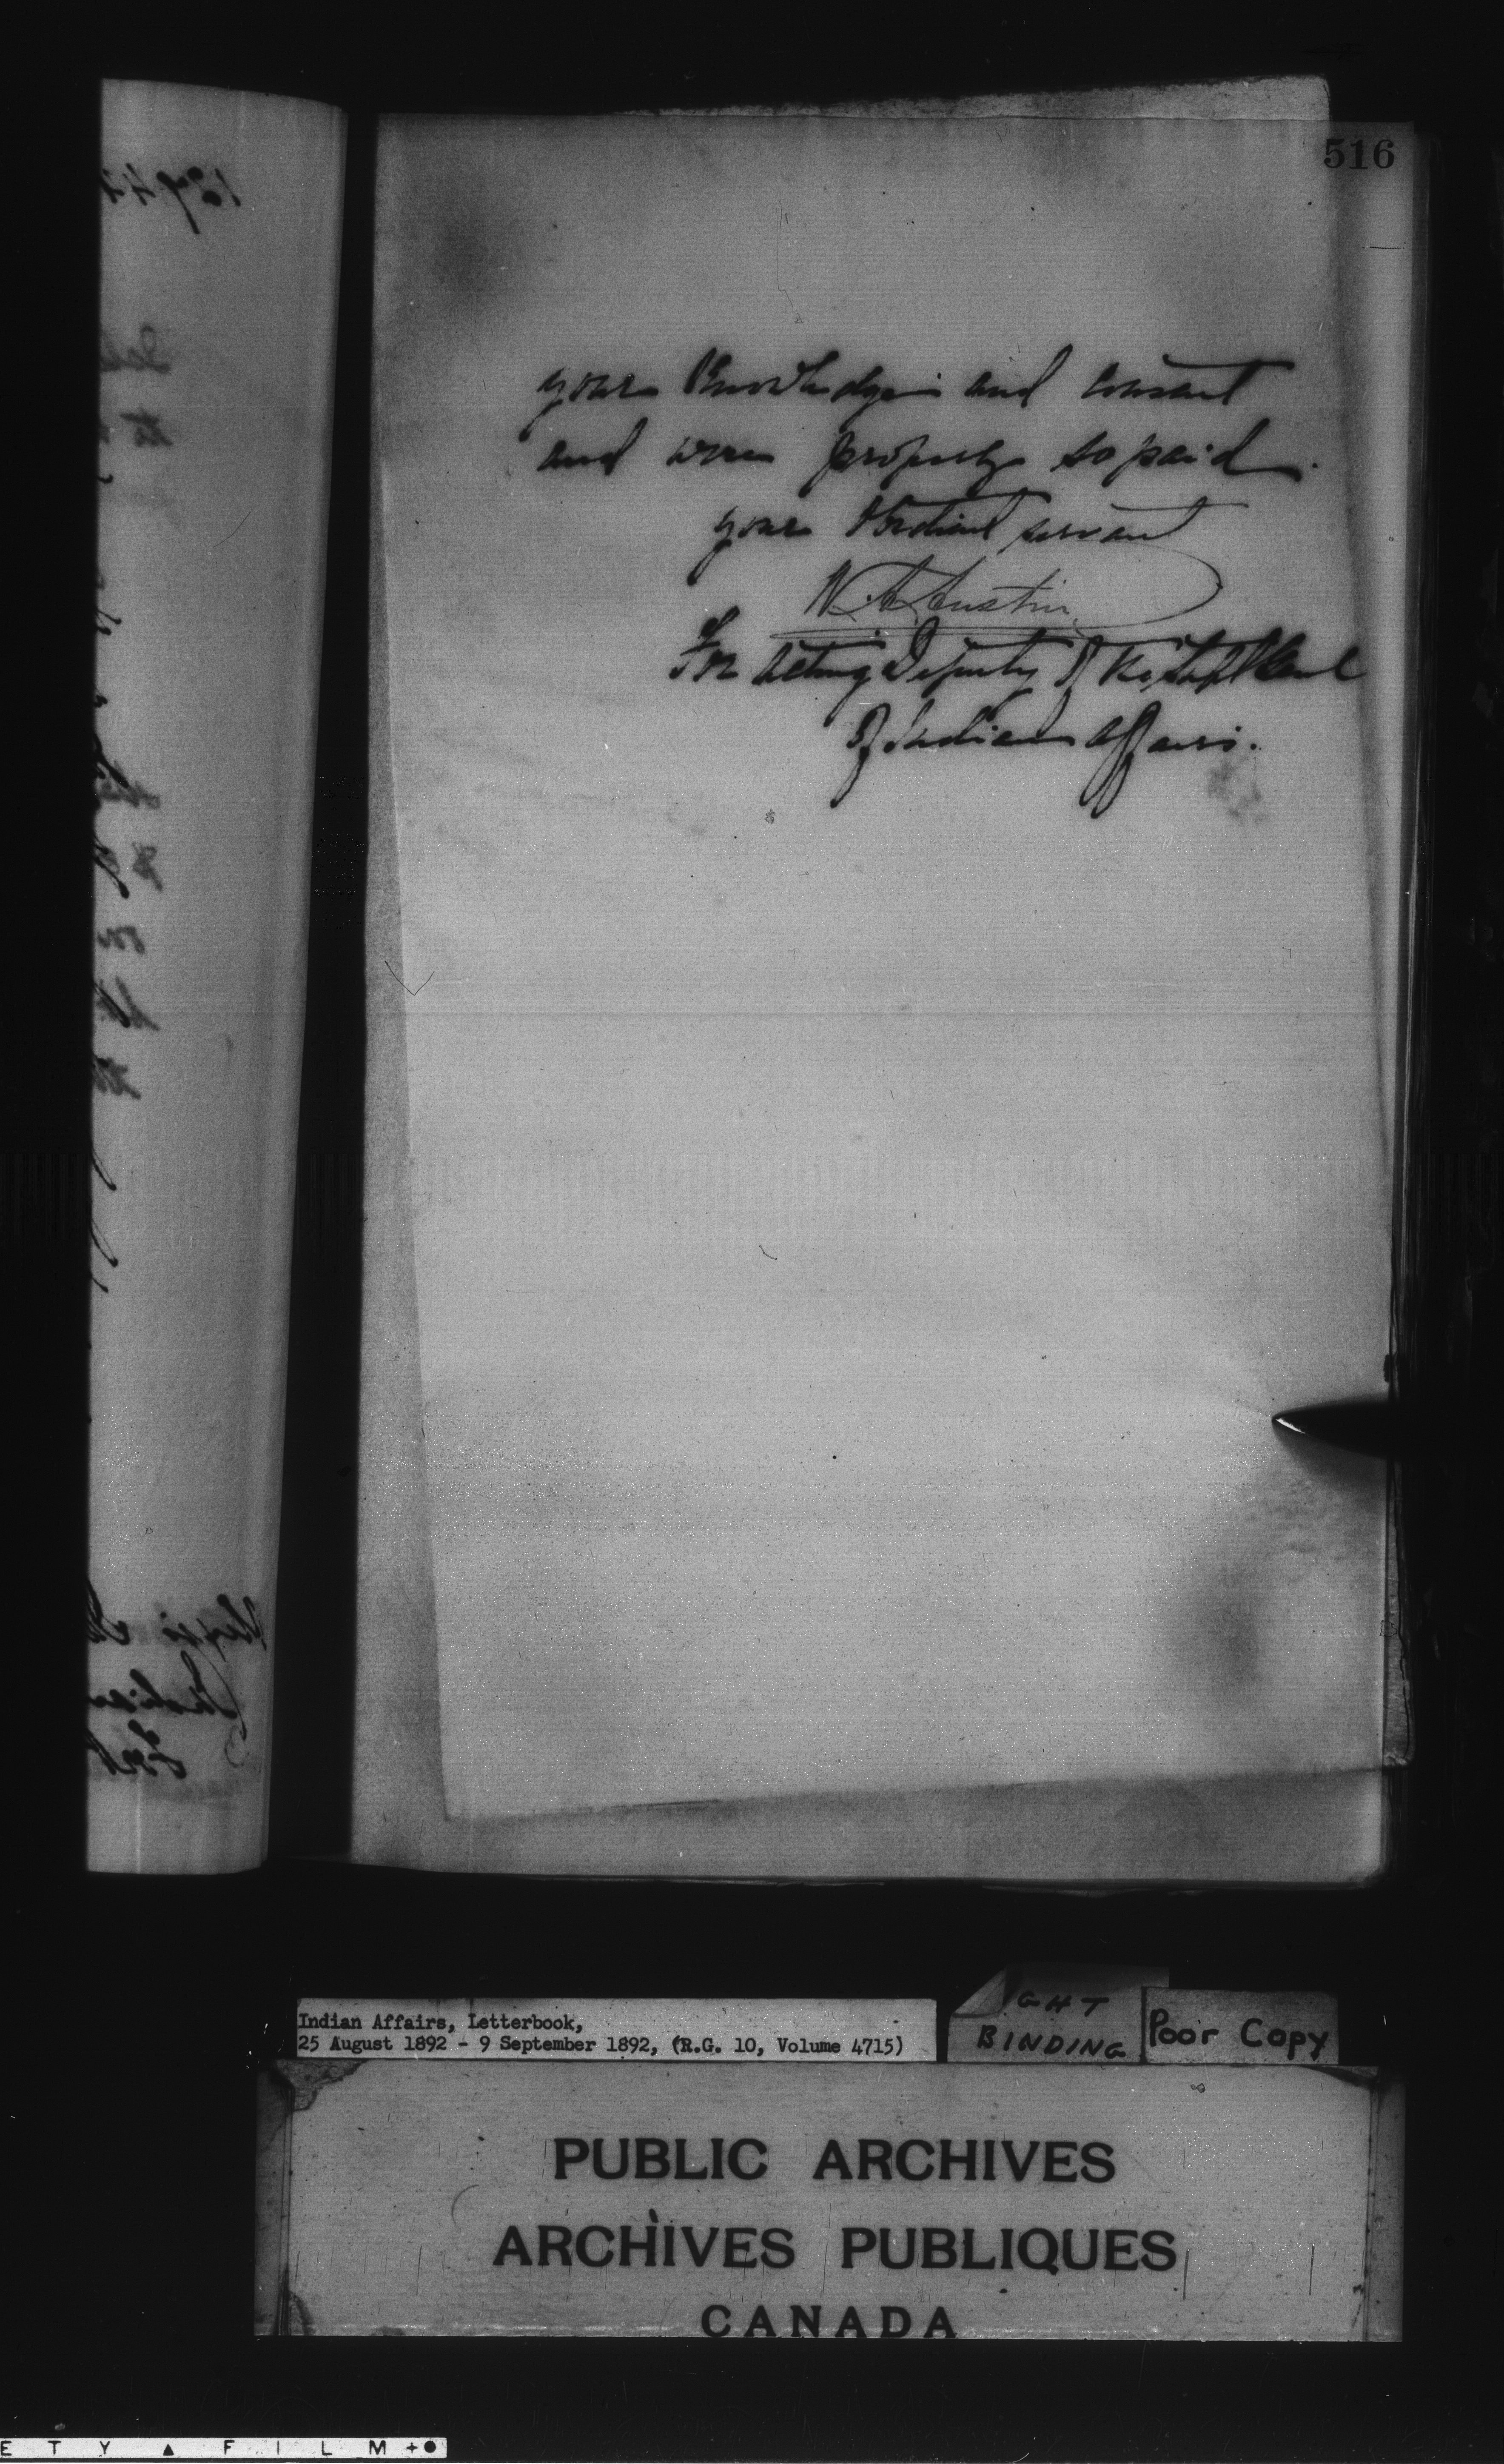 516
your Knowledge and consent
and were properly so paid.
your Obedient servant
W. A. Austin
For Acting Deputy of the Supt Genl
Of Indian Affairs.
Indian Affairs, Letterbook,
25 August 1892 - 9 September 1892, (R.G. 10, Volume 4715)
GHT
BINDING
Poor Copy
PUBLIC ARCHIVES
ARCHIVES PUBLIQUES
CANADA
E T Y ▲ F I L M +●